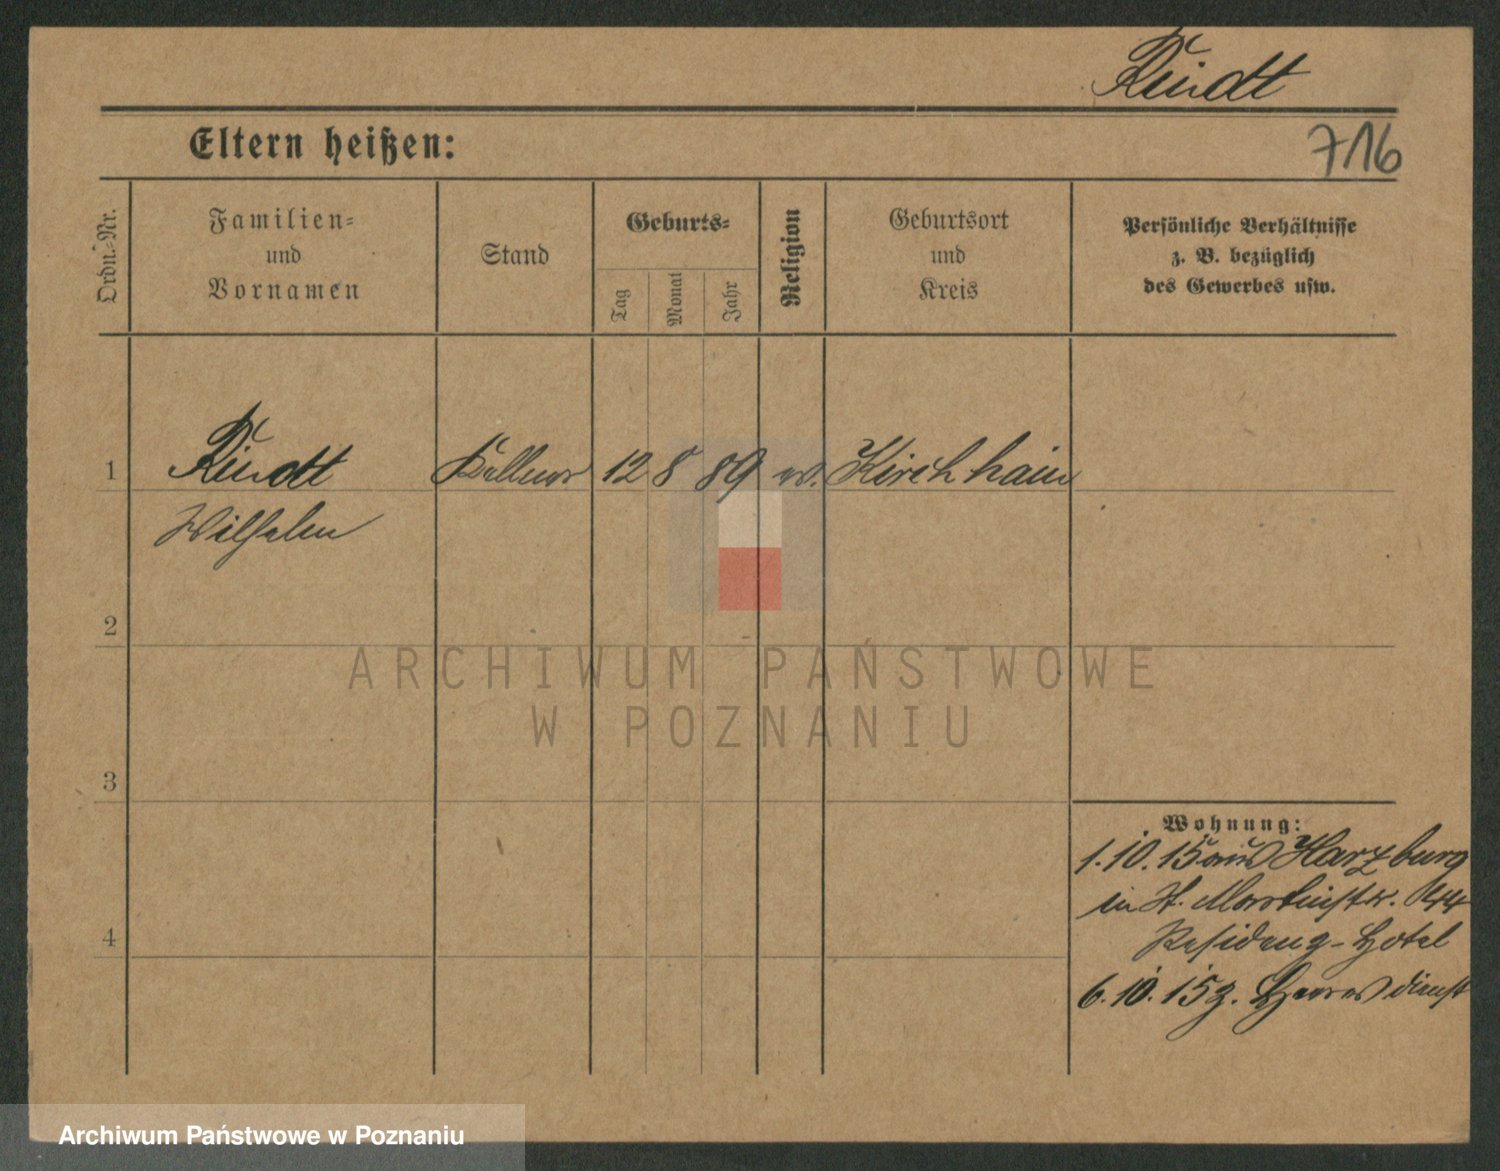 Rindt
716
Eltern heißen:
Ordn.-Nr.
Familien-
und
Vornamen
Stand
Geburts-
Tag
Monat
Jahr
Religion
Geburtsort
und
Kreis
Persönliche Verhältnisse
z. B. bezüglich
des Gewerbes usw.
1
Rindt
Kellner
12
8
89
ev.
Kirchhain
Wilhelm
2
ARCHIWUM PAŃSTWOWE
W POZNANIU
3
Wohnung:
1.10.15 aus Harzburg
in St. Martinstr.
4
Residenz-Hotel
6.10.15 z. Heeresdienst
Archiwum Państwowe w Poznaniu